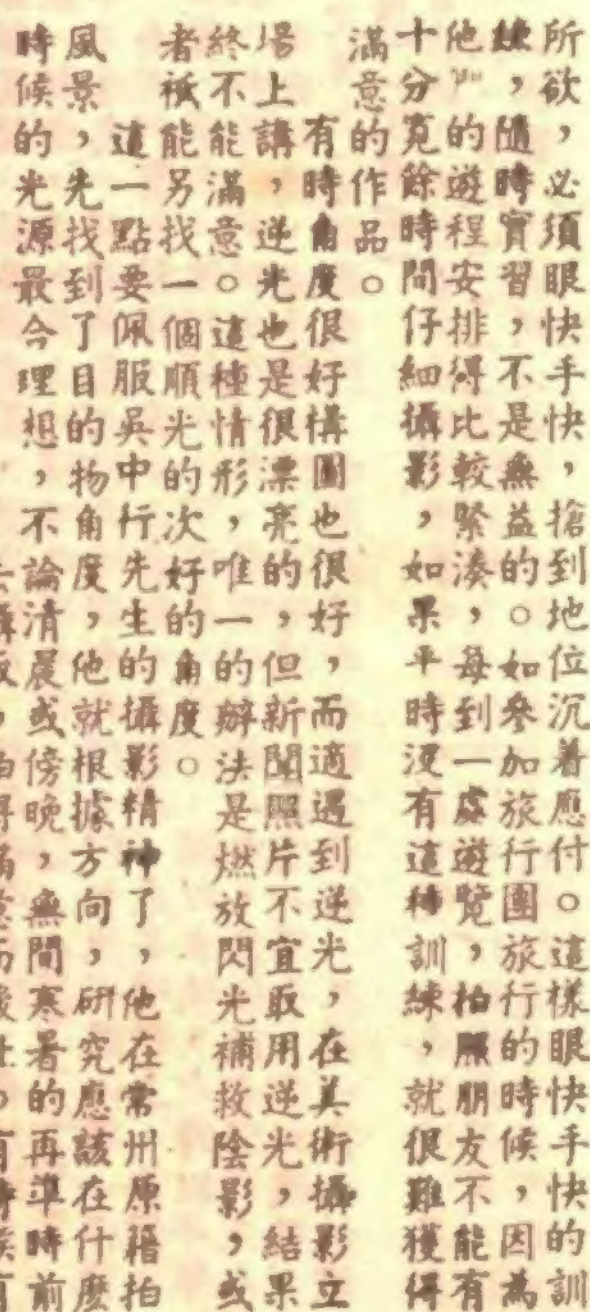 所欲，必須眼快手快，搶到地位沉着應付。這樣眼快手快的訓
練，隨時實習，不是無益的。如參加旅行團旅行的時候，因為
他們的遊程安排得比較緊湊，每到一處遊覽，拍照朋友不能有
十分寬餘時間仔細攝影，如果平時沒有這種訓練，就很難獲得
滿意的作品。
有時角度很好構圖也很好，而適遇到逆光，在美術攝影立
場上講，逆光也是很漂亮的，但新聞照片不宜取用逆光，結果
終不能滿意。這種情形，唯一的辦法是燃放閃光補救陰影，或
者祇能另找一個順光的次好的角度。
這一點要佩服吳中行先生的攝影精神了，他在常州原籍拍
風景，先找到了目的物角度，他就根據方向，研究應該在什麼
時候的光源最合理想，不論清晨或傍晚，無間寒暑的再準時前